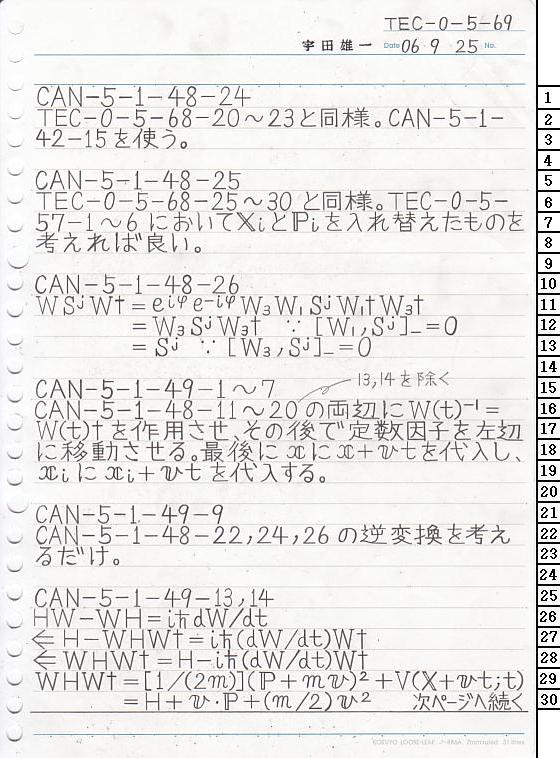 TEC-0-5-69
宇田雄一 Date 06 9 25 No.
CAN-5-1-48-24
TEC-0-5-68-20～23と同様。CAN-5-1-
42-15を使う。
CAN-5-1-48-25
TEC-0-5-68-25～30と同様。TEC-0-5-
57-1～6において𝕏iとℙiを入れ替えたものを
考えれば良い。
CAN-5-1-48-26
WSʲW† = eⁱᵠe⁻ⁱᵠW₃W₁SʲW₁†W₃†
= W₃SʲW₃† ∵ [W₁,Sʲ]₋=0
= Sʲ ∵ [W₃,Sʲ]₋=0
CAN-5-1-49-1～7
13,14を除く
CAN-5-1-48-11～20の両辺にW(t)⁻¹=
W(t)†を作用させ、その後で定数因子を左辺
に移動させる。最後にxにx+vtを代入し、
xiにxi+vtを代入する。
CAN-5-1-49-9
CAN-5-1-48-22,24,26の逆変換を考え
るだけ。
CAN-5-1-49-13,14
HW-WH=iℏdW/dt
⇐ H-WHW†=iℏ(dW/dt)W†
⇐ WHW†=H-iℏ(dW/dt)W†
WHW†=[1/(2m)](ℙ+mv)²+V(𝕏+vt;t)
=H+v·ℙ+(m/2)v² 次ページへ続く
KOKUYO LOOSE-LEAF ノ-836A 7mm ruled 31 lines
1
2
3
4
5
6
7
8
9
10
11
12
13
14
15
16
17
18
19
20
21
22
23
24
25
26
27
28
29
30